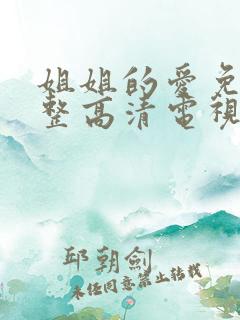 姐姐的愛免
整高清電視
邱朝劍
未經同意禁止轉載